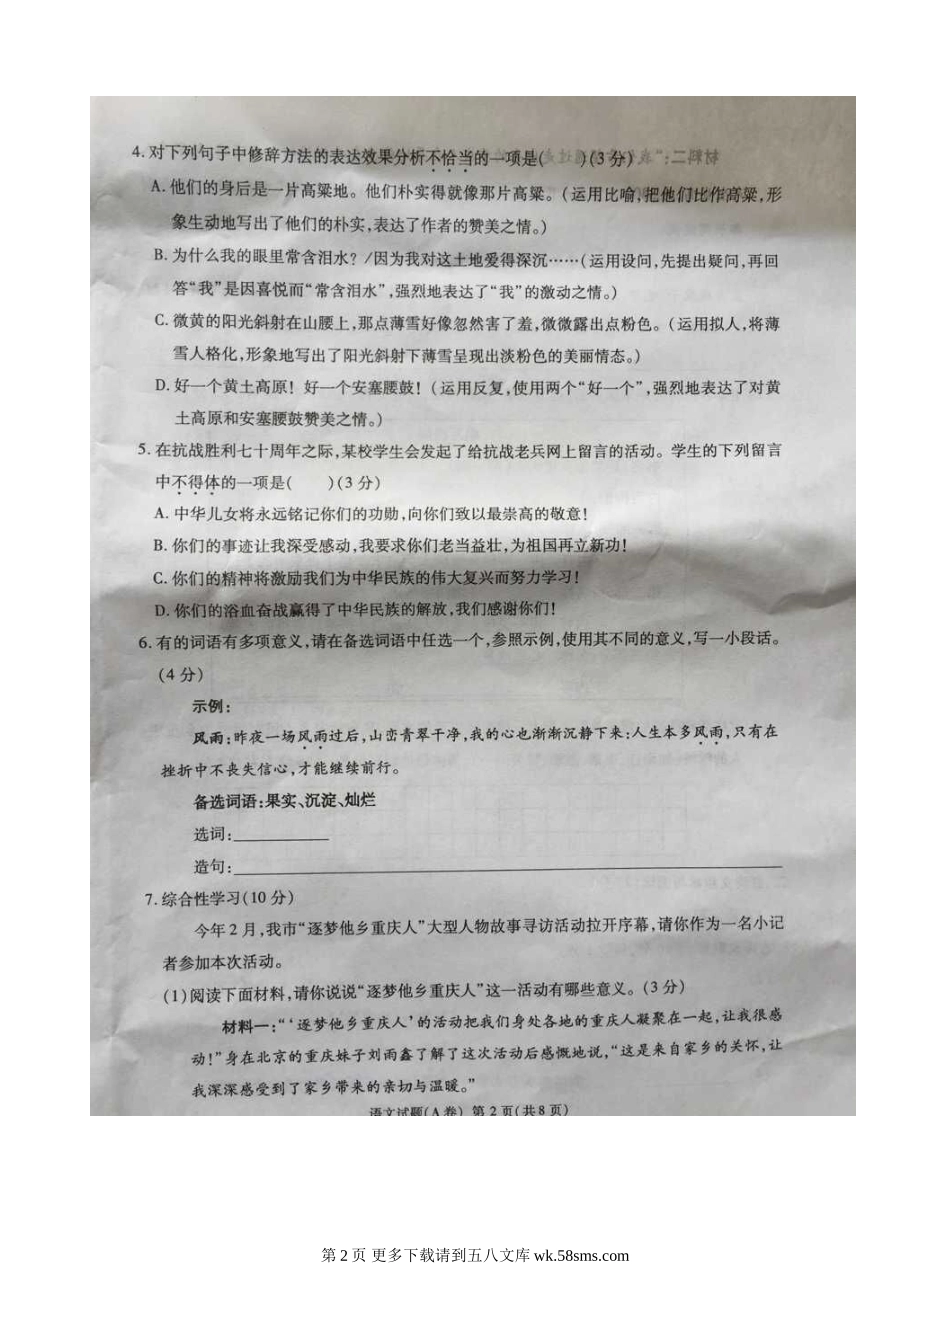 4.对下列句子中修辞方法的表达效果分析不恰当的一项是(　　)(3分)
A.他们的身后是一片高粱地。他们朴实得就像那片高粱。(运用比喻,把他们比作高粱,形
象生动地写出了他们的朴实,表达了作者的赞美之情。)
B.为什么我的眼里常含泪水？/因为我对这土地爱得深沉……(运用设问,先提出疑问,再回
答“我”是因喜悦而“常含泪水”,强烈地表达了“我”的激动之情。)
C.微黄的阳光斜射在山腰上,那点薄雪好像忽然害了羞,微微露出点粉色。(运用拟人,将薄
雪人格化,形象地写出了阳光斜射下薄雪呈现出淡粉色的美丽情态。)
D.好一个黄土高原！好一个安塞腰鼓！(运用反复,使用两个“好一个”,强烈地表达了对黄
土高原和安塞腰鼓赞美之情。)
5.在抗战胜利七十周年之际,某校学生会发起了给抗战老兵网上留言的活动。学生的下列留言
中不得体的一项是(　　)(3分)
A.中华儿女将永远铭记你们的功勋,向你们致以最崇高的敬意！
B.你们的事迹让我深受感动,我要求你们老当益壮,为祖国再立新功！
C.你们的精神将激励我们为中华民族的伟大复兴而努力学习！
D.你们的浴血奋战赢得了中华民族的解放,我们感谢你们！
6.有的词语有多项意义,请在备选词语中任选一个,参照示例,使用其不同的意义,写一小段话。
(4分)
示例：
风雨：昨夜一场风雨过后,山峦青翠干净,我的心也渐渐沉静下来；人生本多风雨,只有在
挫折中不丧失信心,才能继续前行。
备选词语：果实、沉淀、灿烂
选词：
造句：
7.综合性学习(10分)
今年2月,我市“逐梦他乡重庆人”大型人物故事寻访活动拉开序幕,请你作为一名小记
者参加本次活动。
(1)阅读下面材料,请你说说“逐梦他乡重庆人”这一活动有哪些意义。(3分)
材料一：“‘逐梦他乡重庆人’的活动把我们身处各地的重庆人凝聚在一起,让我很感
动！”身在北京的重庆妹子刘雨鑫了解了这次活动后感慨地说,“这是来自家乡的关怀,让
我深深感受到了家乡带来的亲切与温暖。”
语文试题(A卷) 第2页(共8页)
第 2 页 更多下载请到五八文库 wk.58sms.com